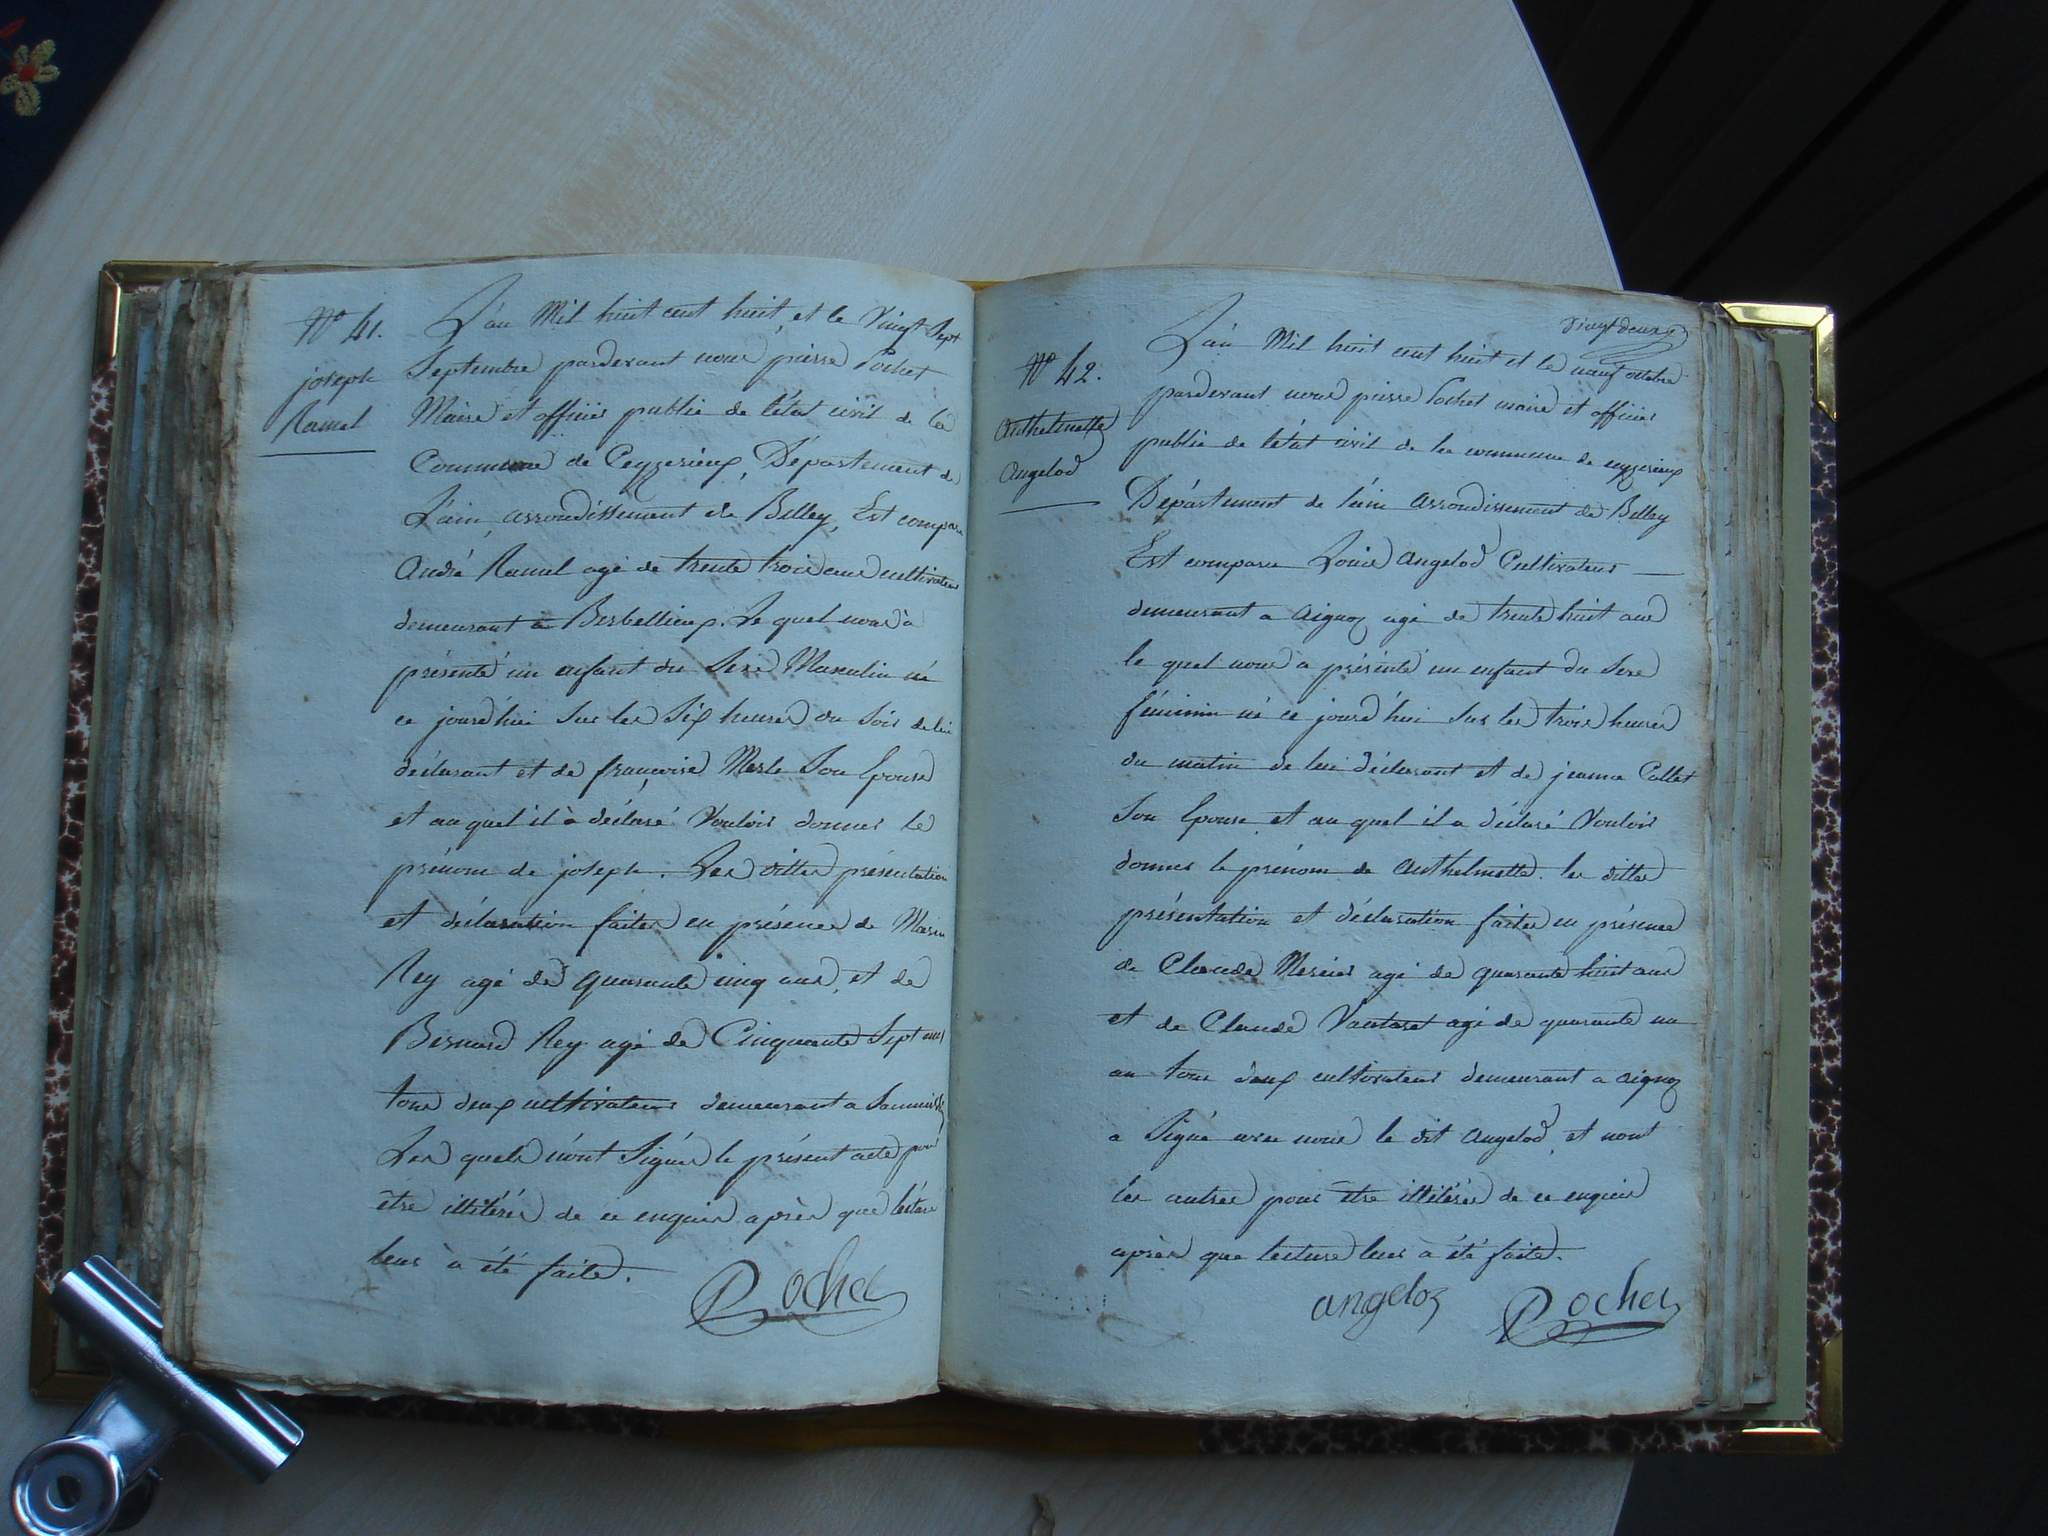 N° 41.
joseph
Ramel
L'an Mil huit cent huit, et le Vingt Sept
Septembre pardevant nous pierre Pochet
Maire et officier public de l'état civil de la
Commune de Ceyzerieux, Département de
L'ain, arrondissement de Belley, Est comparu
André Ramel agé de trente trois ans cultivateur
demeurant a Berbellieux. Le quel nous à
présenté un enfant du Sexe Masculin né
ce jourd'hui Sur les Six heures du Soir de lui
déclarant et de françoise Merle Son Epouse
et au quel il à déclaré Vouloir donner le
prénom de joseph. Les dittes présentation
et déclaration faites en présence de Marin
Rey agé de quarante cinq ans, et de
Bernard Rey agé de Cinquante Sept ans
tous deux cultivateurs demeurant a
Les quels n'ont Signés le présent acte pour
être illitérés de ce enquis après que lecture
leur à été faite.
Pochet
vingt deux
N° 42.
Anthelmette
Angelod
L'an Mil huit cent huit et le neuf octobre
pardevant nous pierre Pochet maire et officier
public de l'état civil de la commune de ceyzerieux
Département de l'ain arrondissement de Belley
Est comparu Louis Angelod Cultivateur
demeurant a aignoz agé de trente huit ans
le quel nous a présenté un enfant du Sexe
féminin né ce jourd'hui Sur les trois heures
du matin de lui déclarant et de jeanne Collet
Son Epouse et au quel il a déclaré Vouloir
donner le prénom de Anthelmette. les dittes
présentation et déclaration faites en présence
de Claude Mercier agé de quarante huit ans
et de Claude Vautaret agé de quarante un
an tous deux cultivateurs demeurant a aignoz
a Signé avec nous le dit Angelod, et nont
les autres pour être illitérés de ce enquis
après que lecture leur à été faite.
angeloz
Pochet